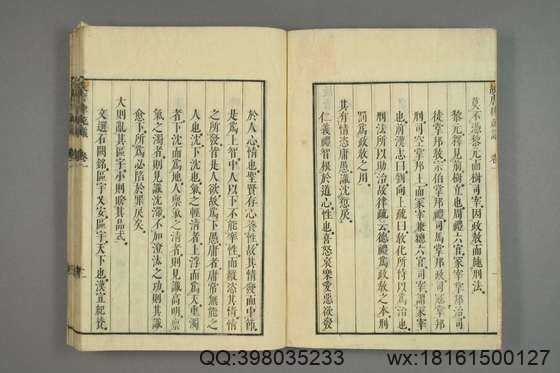 莫不憑黎元而樹司宰因政敎而施刑法
黎元釋見前樹立也周禮六官冢宰掌邦治司
徒掌邦敎宗伯掌邦禮司馬掌邦政司寇掌邦
刑司空掌邦土而冢宰兼總六官司宰謂冢宰
也前漢志曰物向上疏曰敎化所恃以爲治也
刑法所以助治故律疏云德禮爲政敎之本刑
罰爲政敎之用
其有情恣庸愚識沈愆戾
仁義禮智根於道心性也喜怒哀樂愛惡欲發
於人心情也聖賢存心養性故其情發而中節
是爲上智中人以下不能率性而縱恣其情情
之所發皆是人欲故爲下愚庸者庸常無能之
人也沈下沈也氣之輕淸者上浮而爲天重濁
者下沈而爲地人稟氣之淸者則見識高明稟
氣之濁者則見識沈滯不加澄汰之功則其識
愈下所爲必陷於罪戾矣
大則亂其區宇小則睽其品式
文選石闕銘區宇乂安區宇天下也漢宣紀贊
卷一
QQ:398035233
wx:18161500127